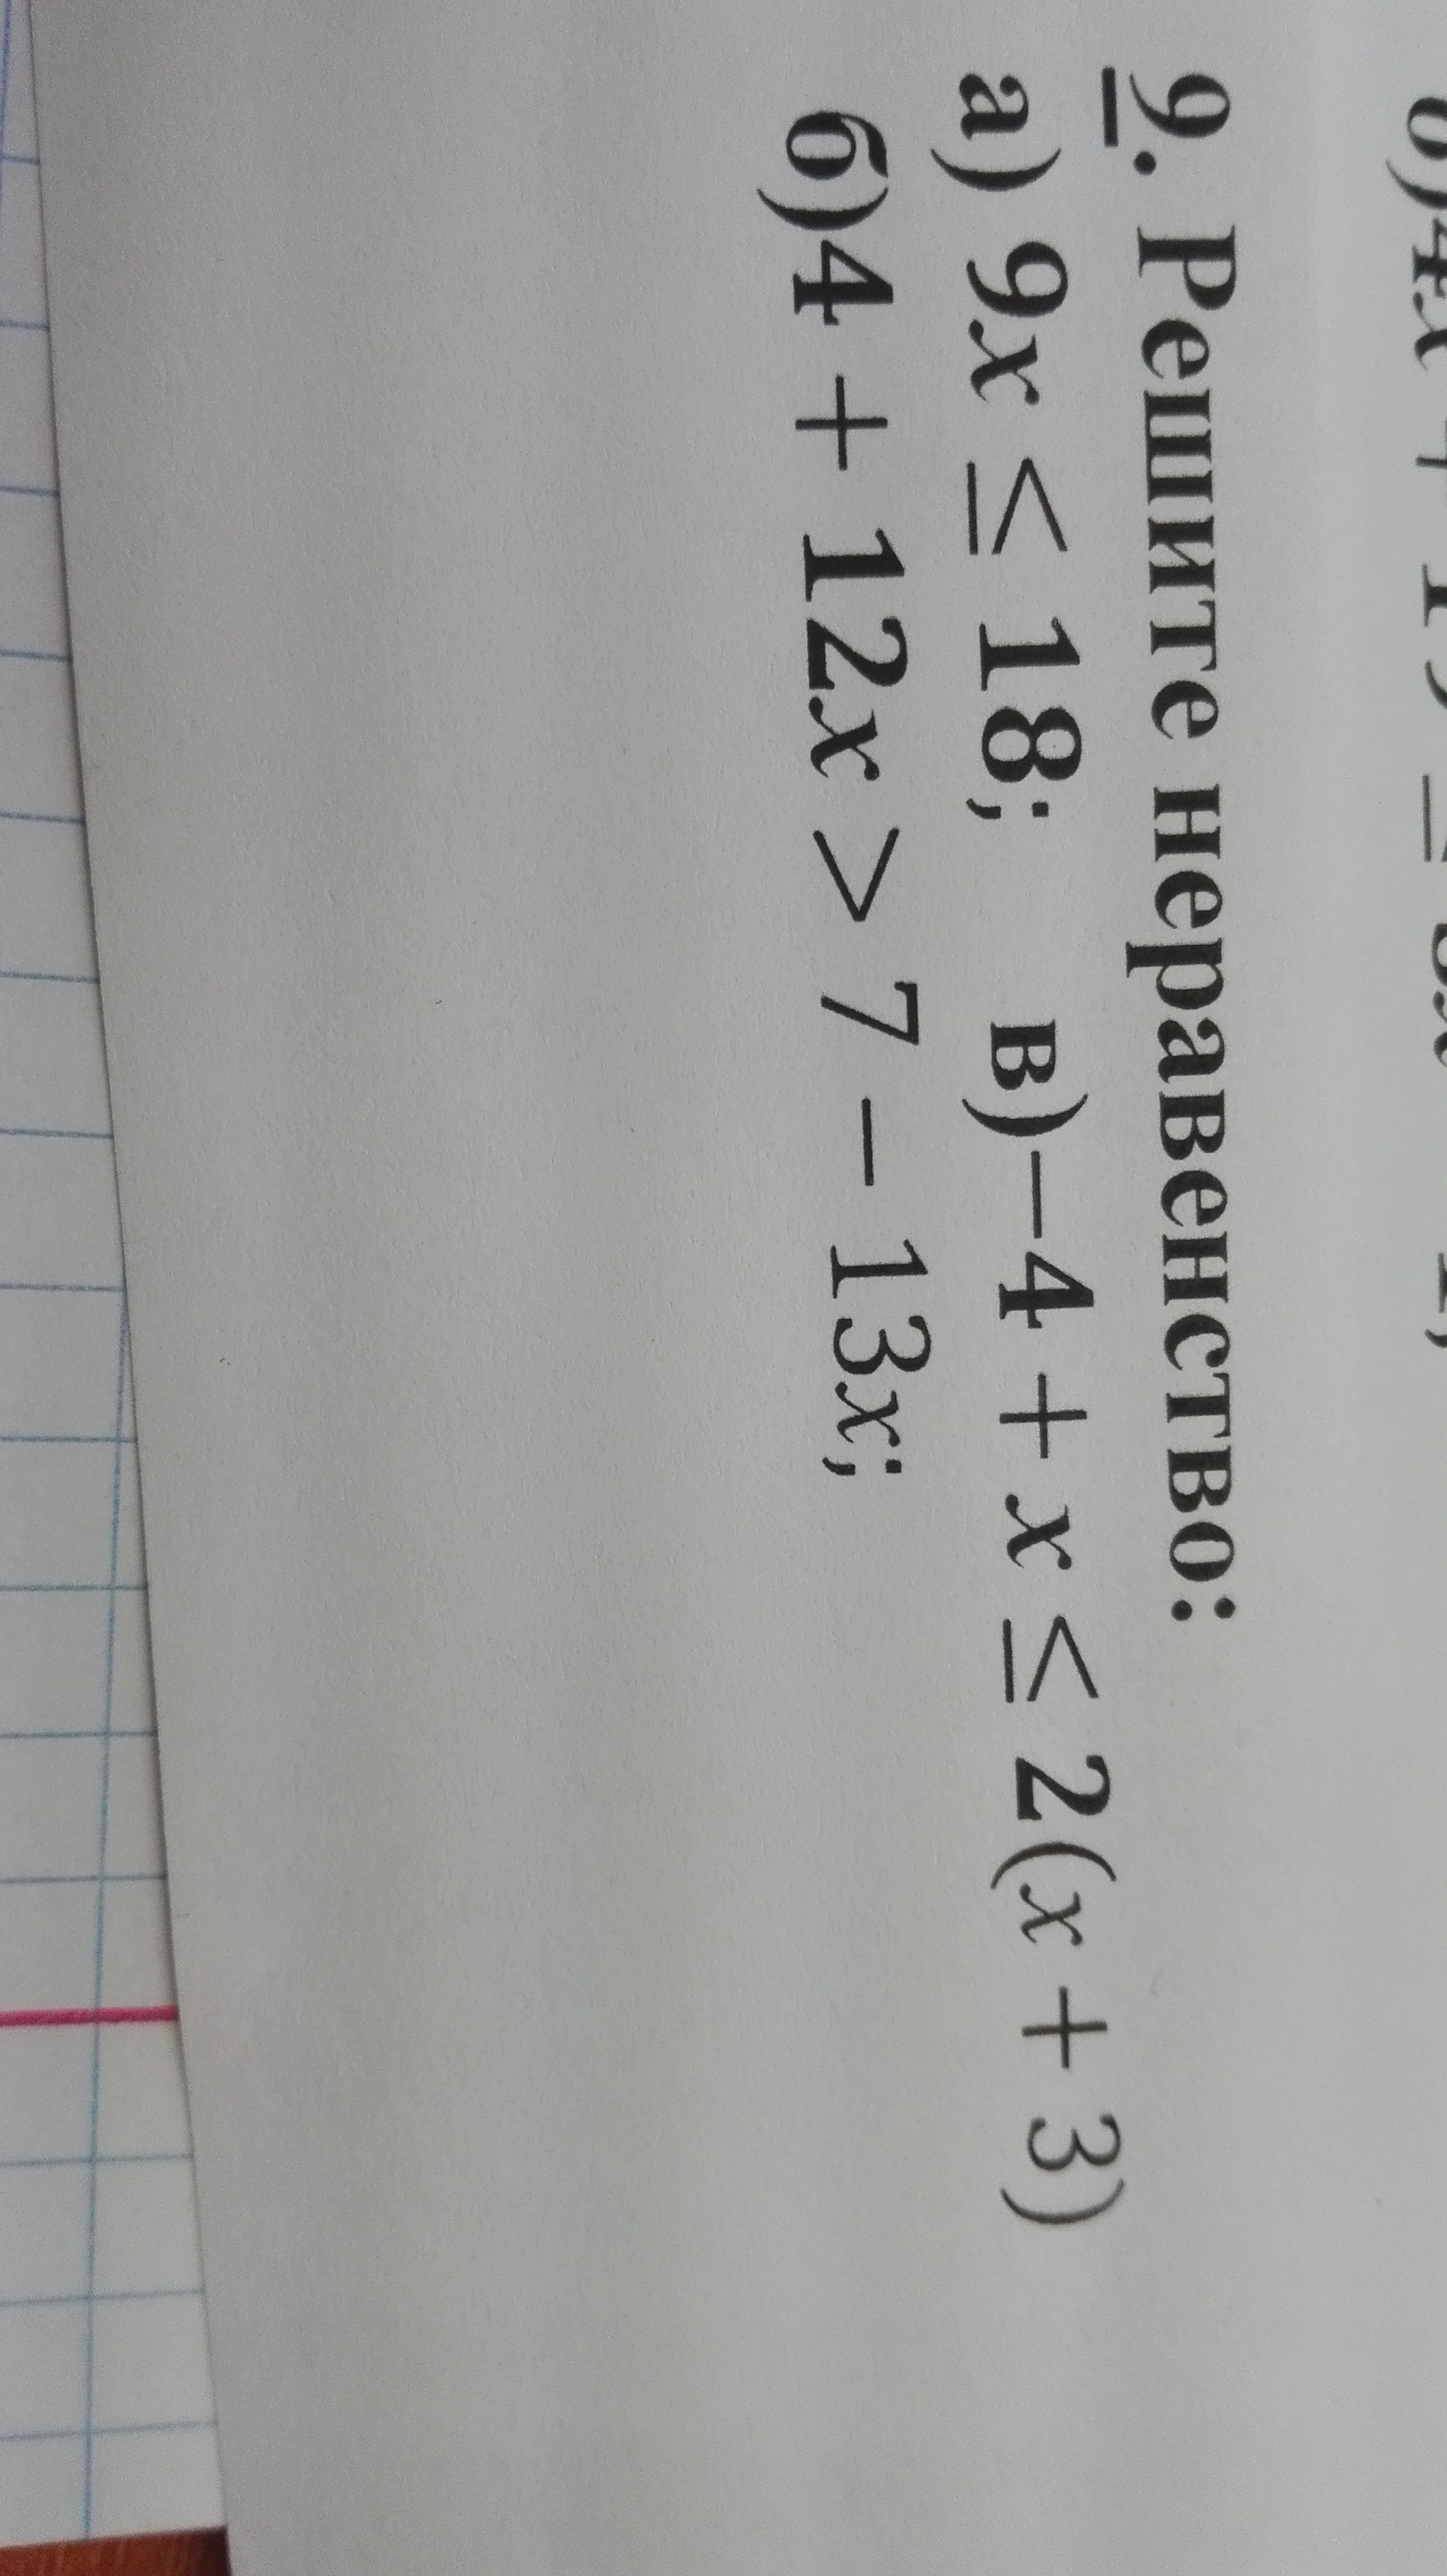 9. Решите неравенство:
а) 9x ≤ 18; в)−4 + x ≤ 2(x + 3)
б)4 + 12x > 7 − 13x;